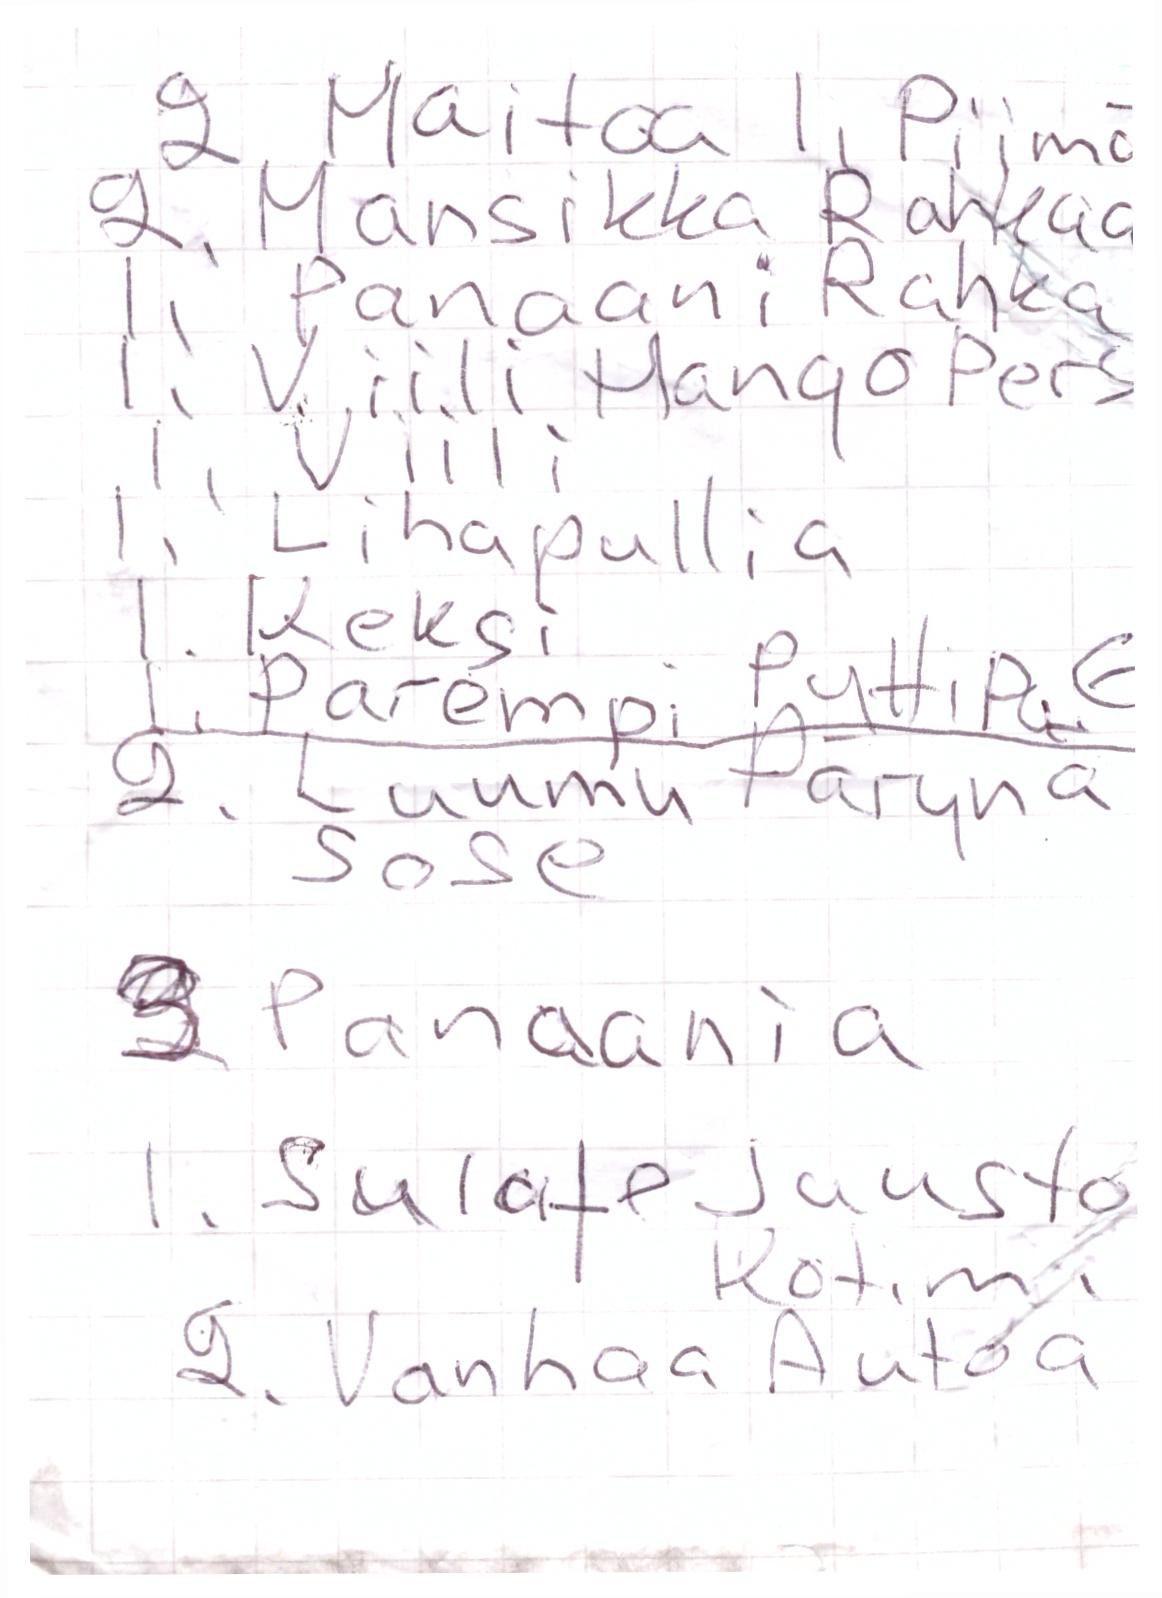 2. Maitoa 1. Piimä
2. Mansikka Rahkaa
1. Panaani Rahka
1. Viili Mango Pers
1. Viili
1. Lihapullia
1. Keksi
1. Parempi
2. Luumu Päärynä
Sose
3 Panaania
1. Sulate Jausto
Kotim.
2. Vanhaa Autoa